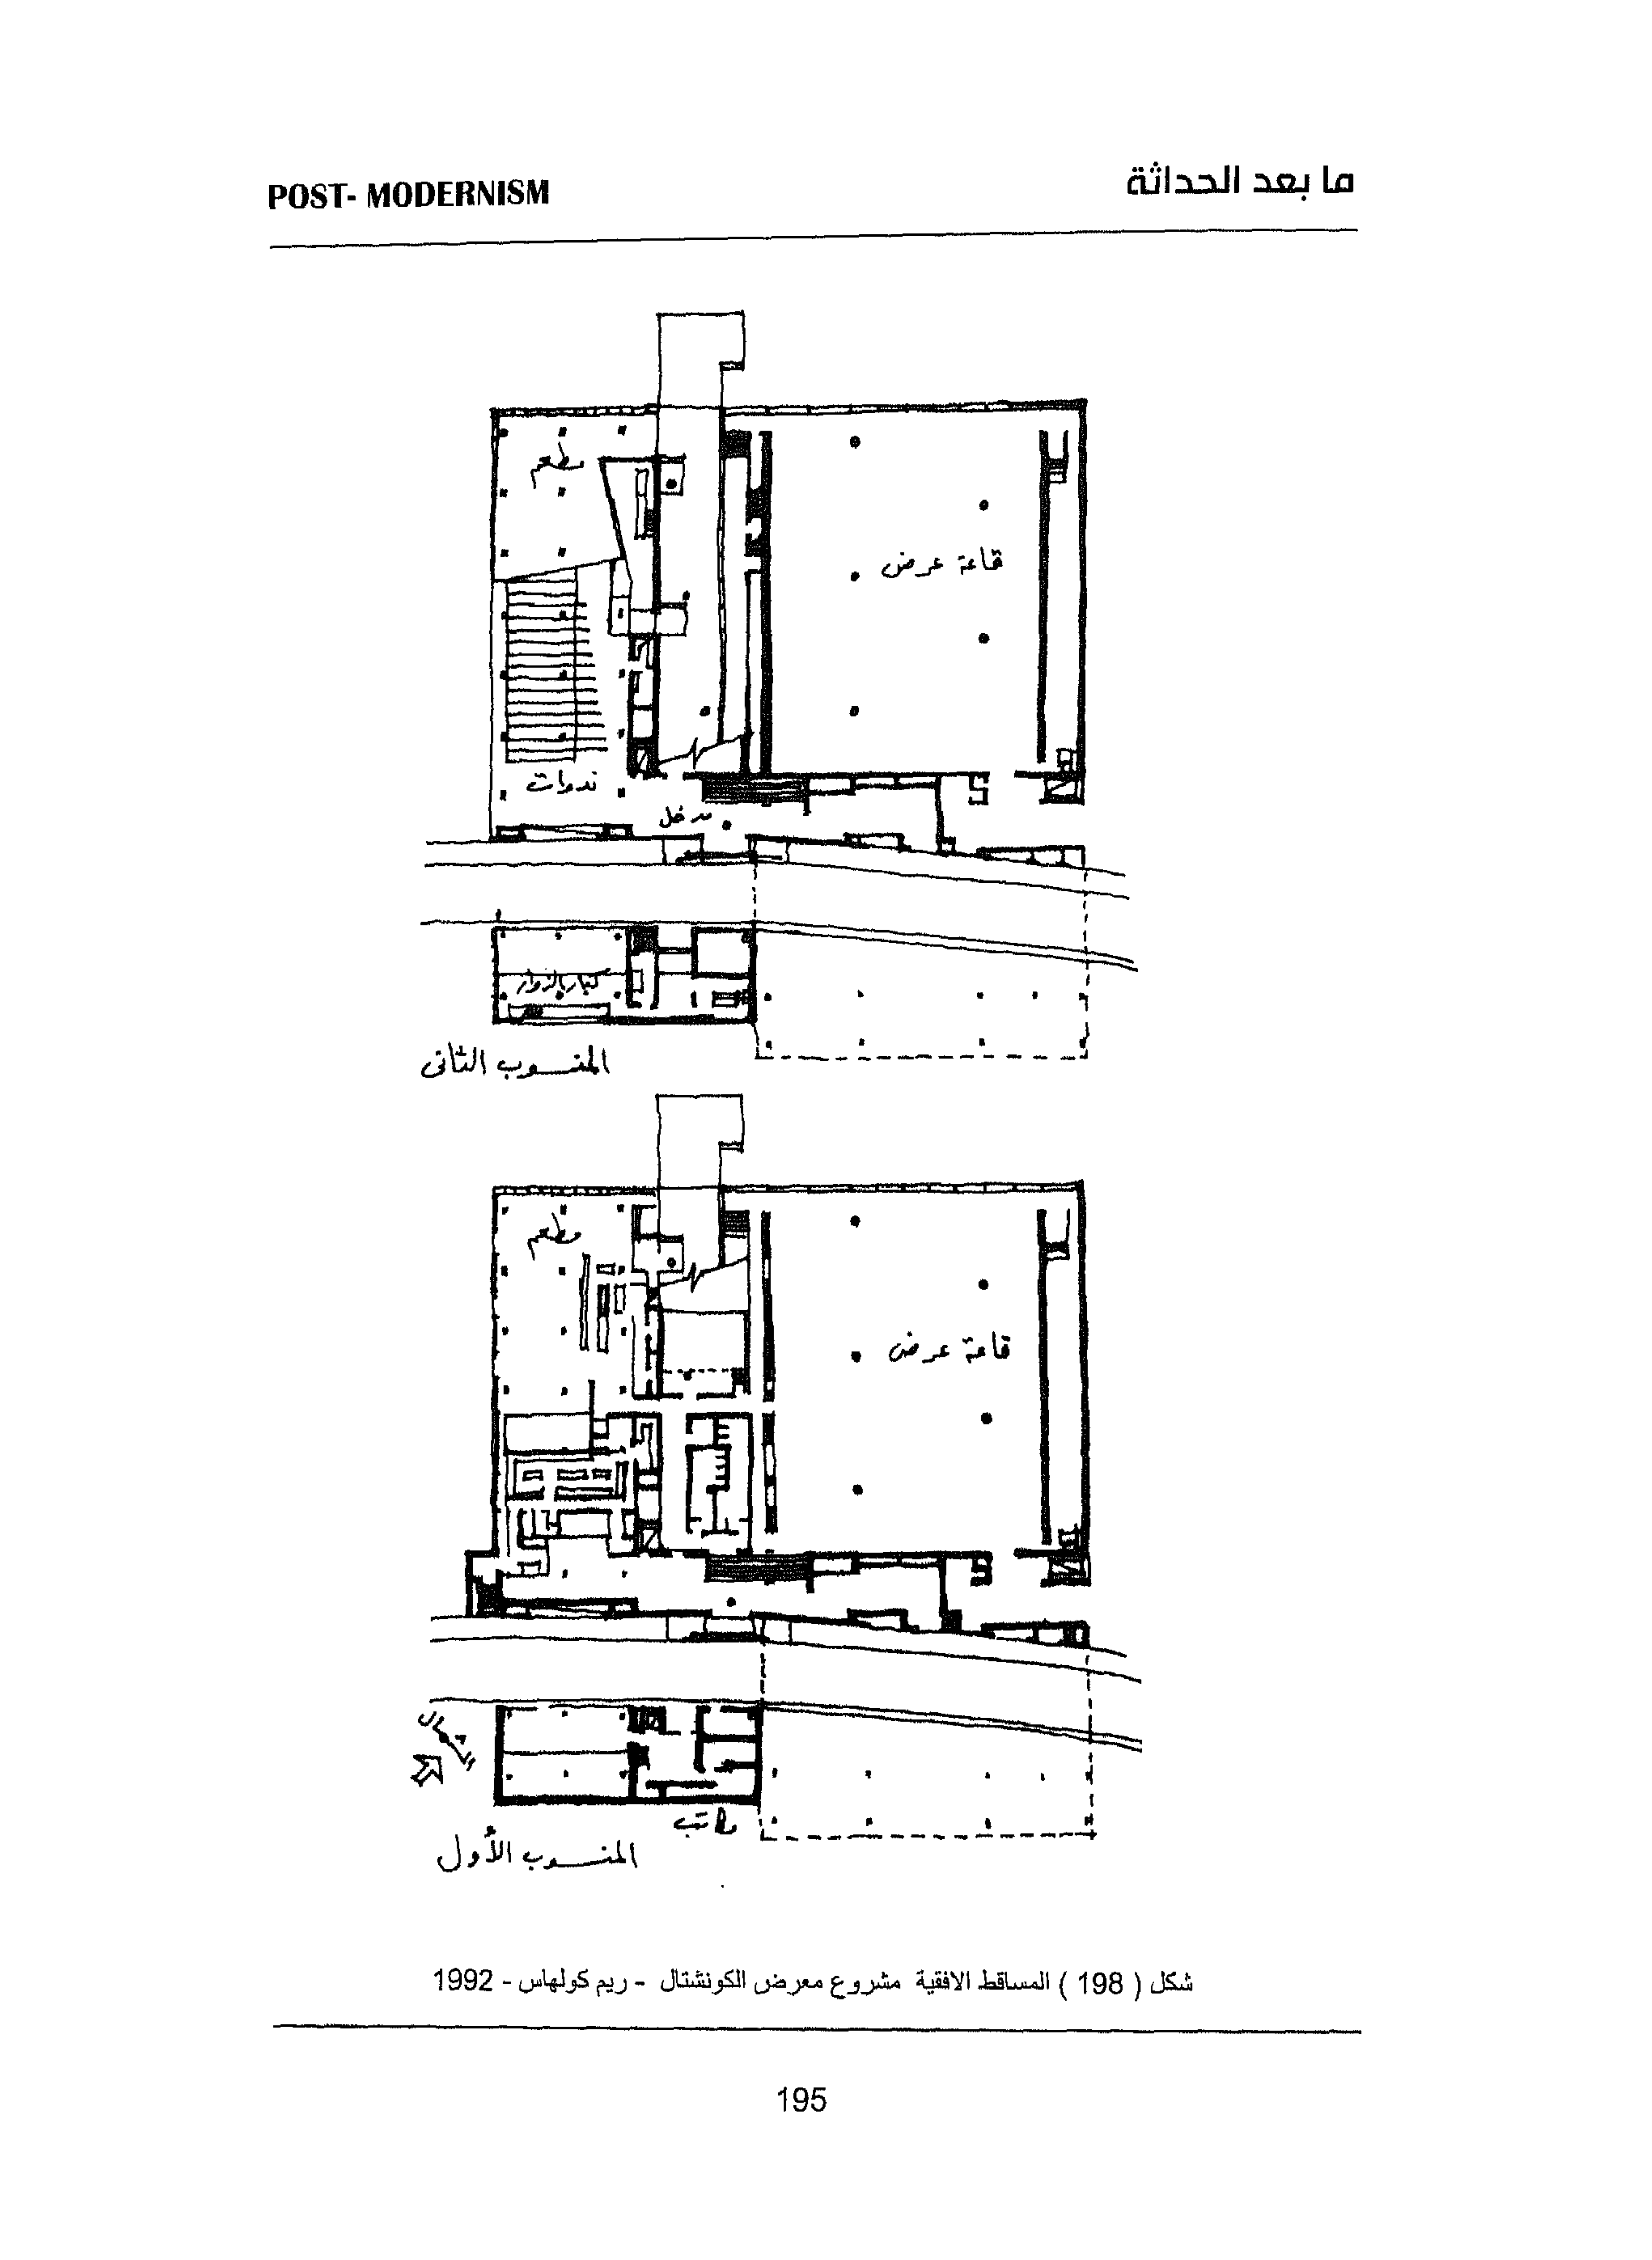 POST- MODERNISM
ما بعد الحداثة
مطعم
قاعة عرض
ندوات
مدخل
كبار الزوار
المنسوب الثانى
مطعم
قاعة عرض
الشمال
مكاتب
المنسوب الأول
شكل ( 198 ) المساقط الافقية مشروع معرض الكونشتال - ريم كولهاس - 1992
195